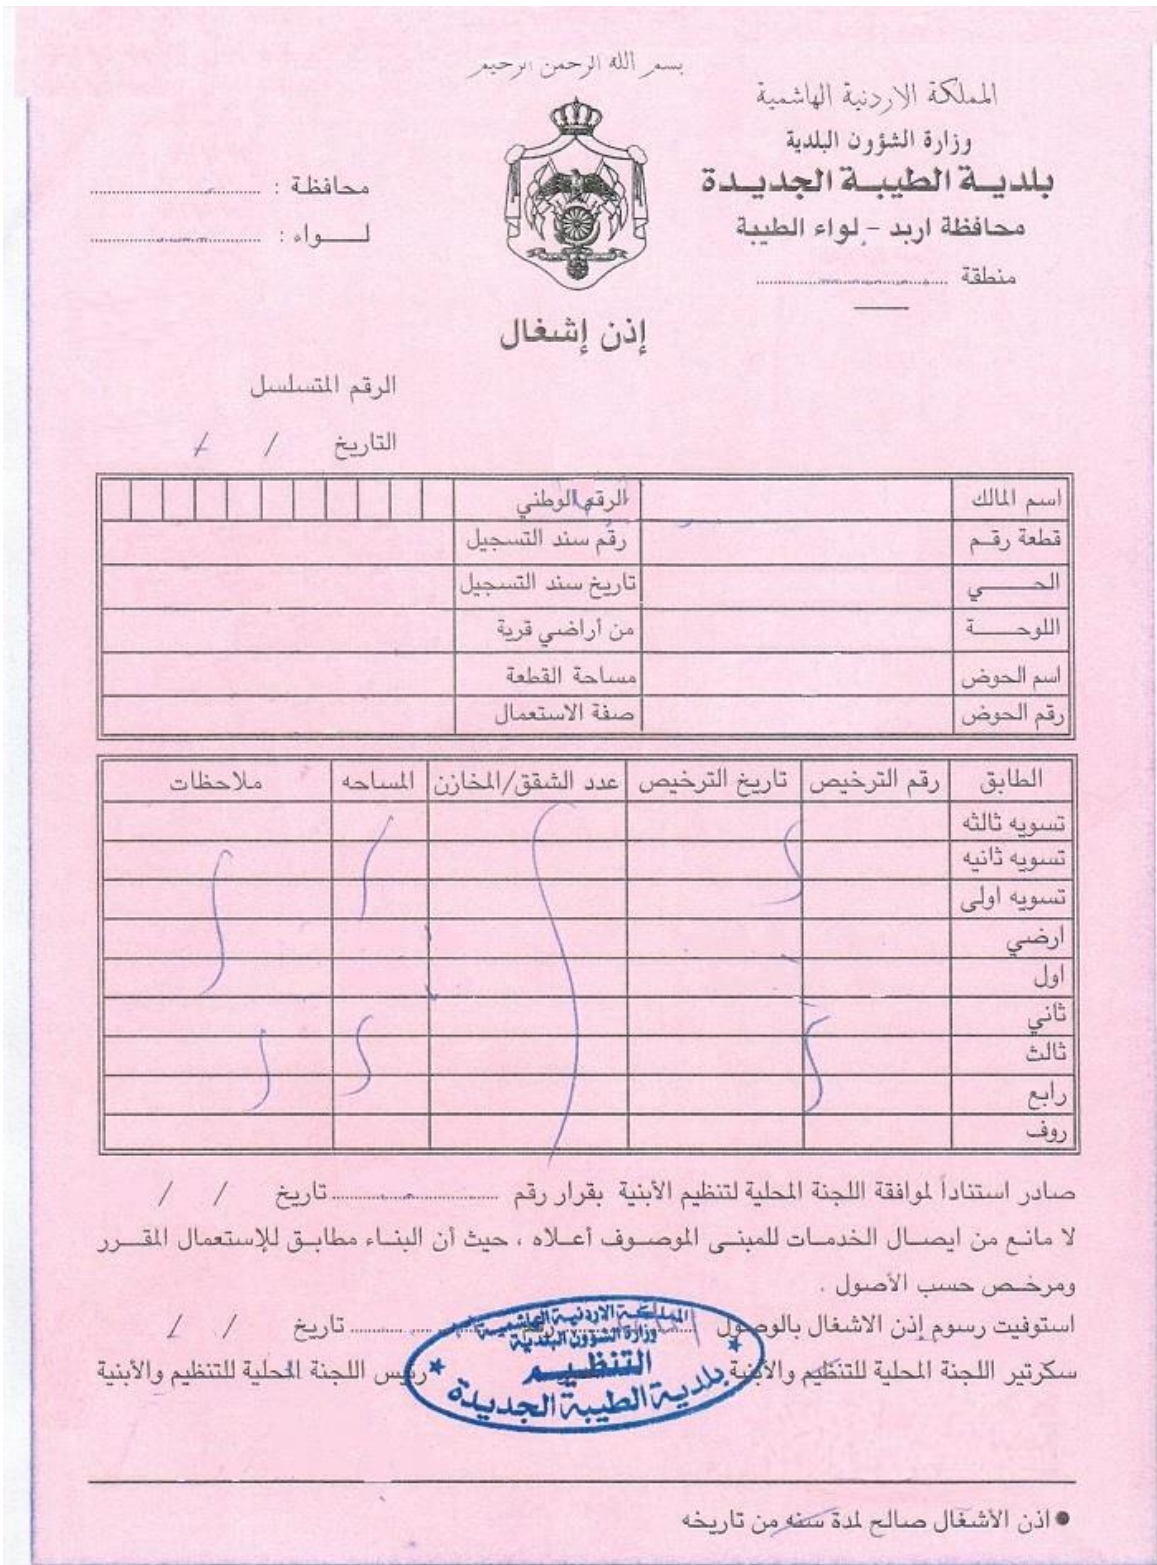 بسم الله الرحمن الرحيم
المملكة الاردنية الهاشمية
وزارة الشؤون البلدية
بلديـــة الطيبـــة الجديـــدة
محافظة اربد - لواء الطيبة
منطقة ........................
محافظة : ........................
لـــــواء : ........................
إذن إشغال
الرقم المتسلسل
التاريخ / /
اسم المالك الرقم الوطني
قطعة رقـم رقم سند التسجيل
الحـــــي تاريخ سند التسجيل
اللوحـــــة من أراضي قرية
اسم الحوض مساحة القطعة
رقم الحوض صفة الاستعمال
الطابق رقم الترخيص تاريخ الترخيص عدد الشقق/المخازن المساحه ملاحظات
تسويه ثالثه
تسويه ثانيه
تسويه اولى
ارضي
اول
ثاني
ثالث
رابع
روف
صادر استناداً لموافقة اللجنة المحلية لتنظيم الأبنية بقرار رقم ........................ تاريخ / /
لا مانـع من ايصـــال الخدمـــات للمبنــى الموصــوف أعــلاه ، حيث أن البنـاء مطابـق للإستعمال المقـــرر
ومرخـص حسب الأصول .
استوفيت رسوم إذن الاشغال بالوصول ............ رقم ............ تاريخ / /
سكرتير اللجنة المحلية للتنظيم والأبنية رئيس اللجنة المحلية للتنظيم والأبنية
المملكة الاردنية الهاشمية
وزارة الشؤون البلدية
التنظيـــم
بلدية الطيبة الجديدة
● اذن الأشغال صالح لمدة سنه من تاريخه